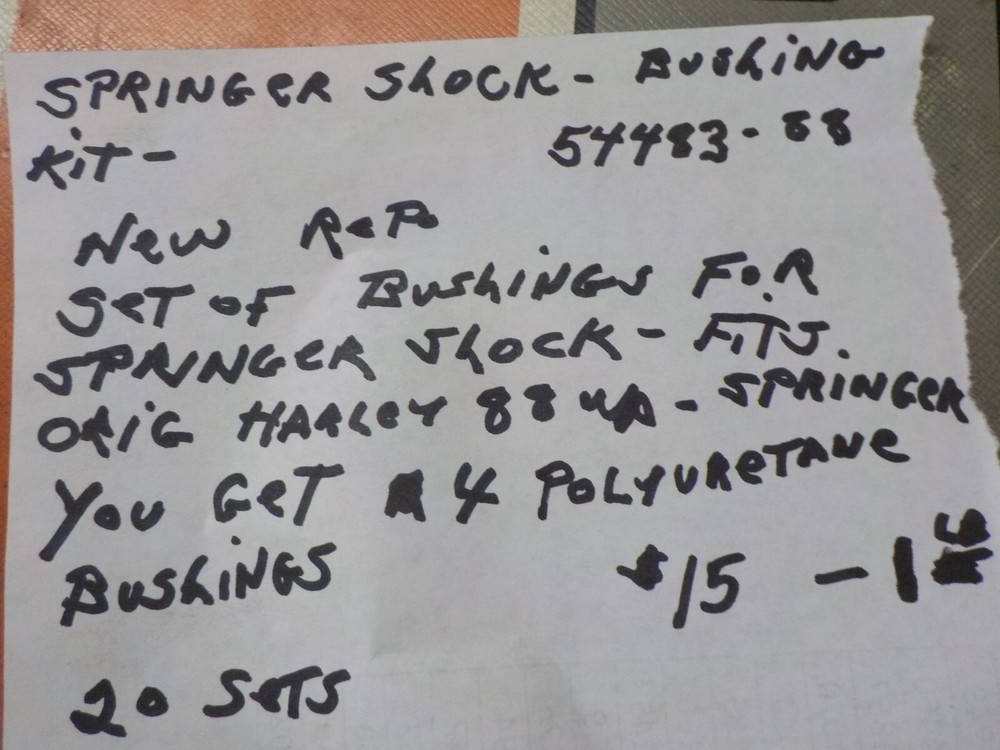 SPRINGER SHOCK - BUSHING
KIT - 54483-88
NEW REP.
SET OF BUSHINGS FOR
SPRINGER SHOCK - FITS.
ORIG HARLEY 88 UP - SPRINGER
YOU GET 4 POLYURETANE
BUSHINGS $15 - 1 LB
20 SETS